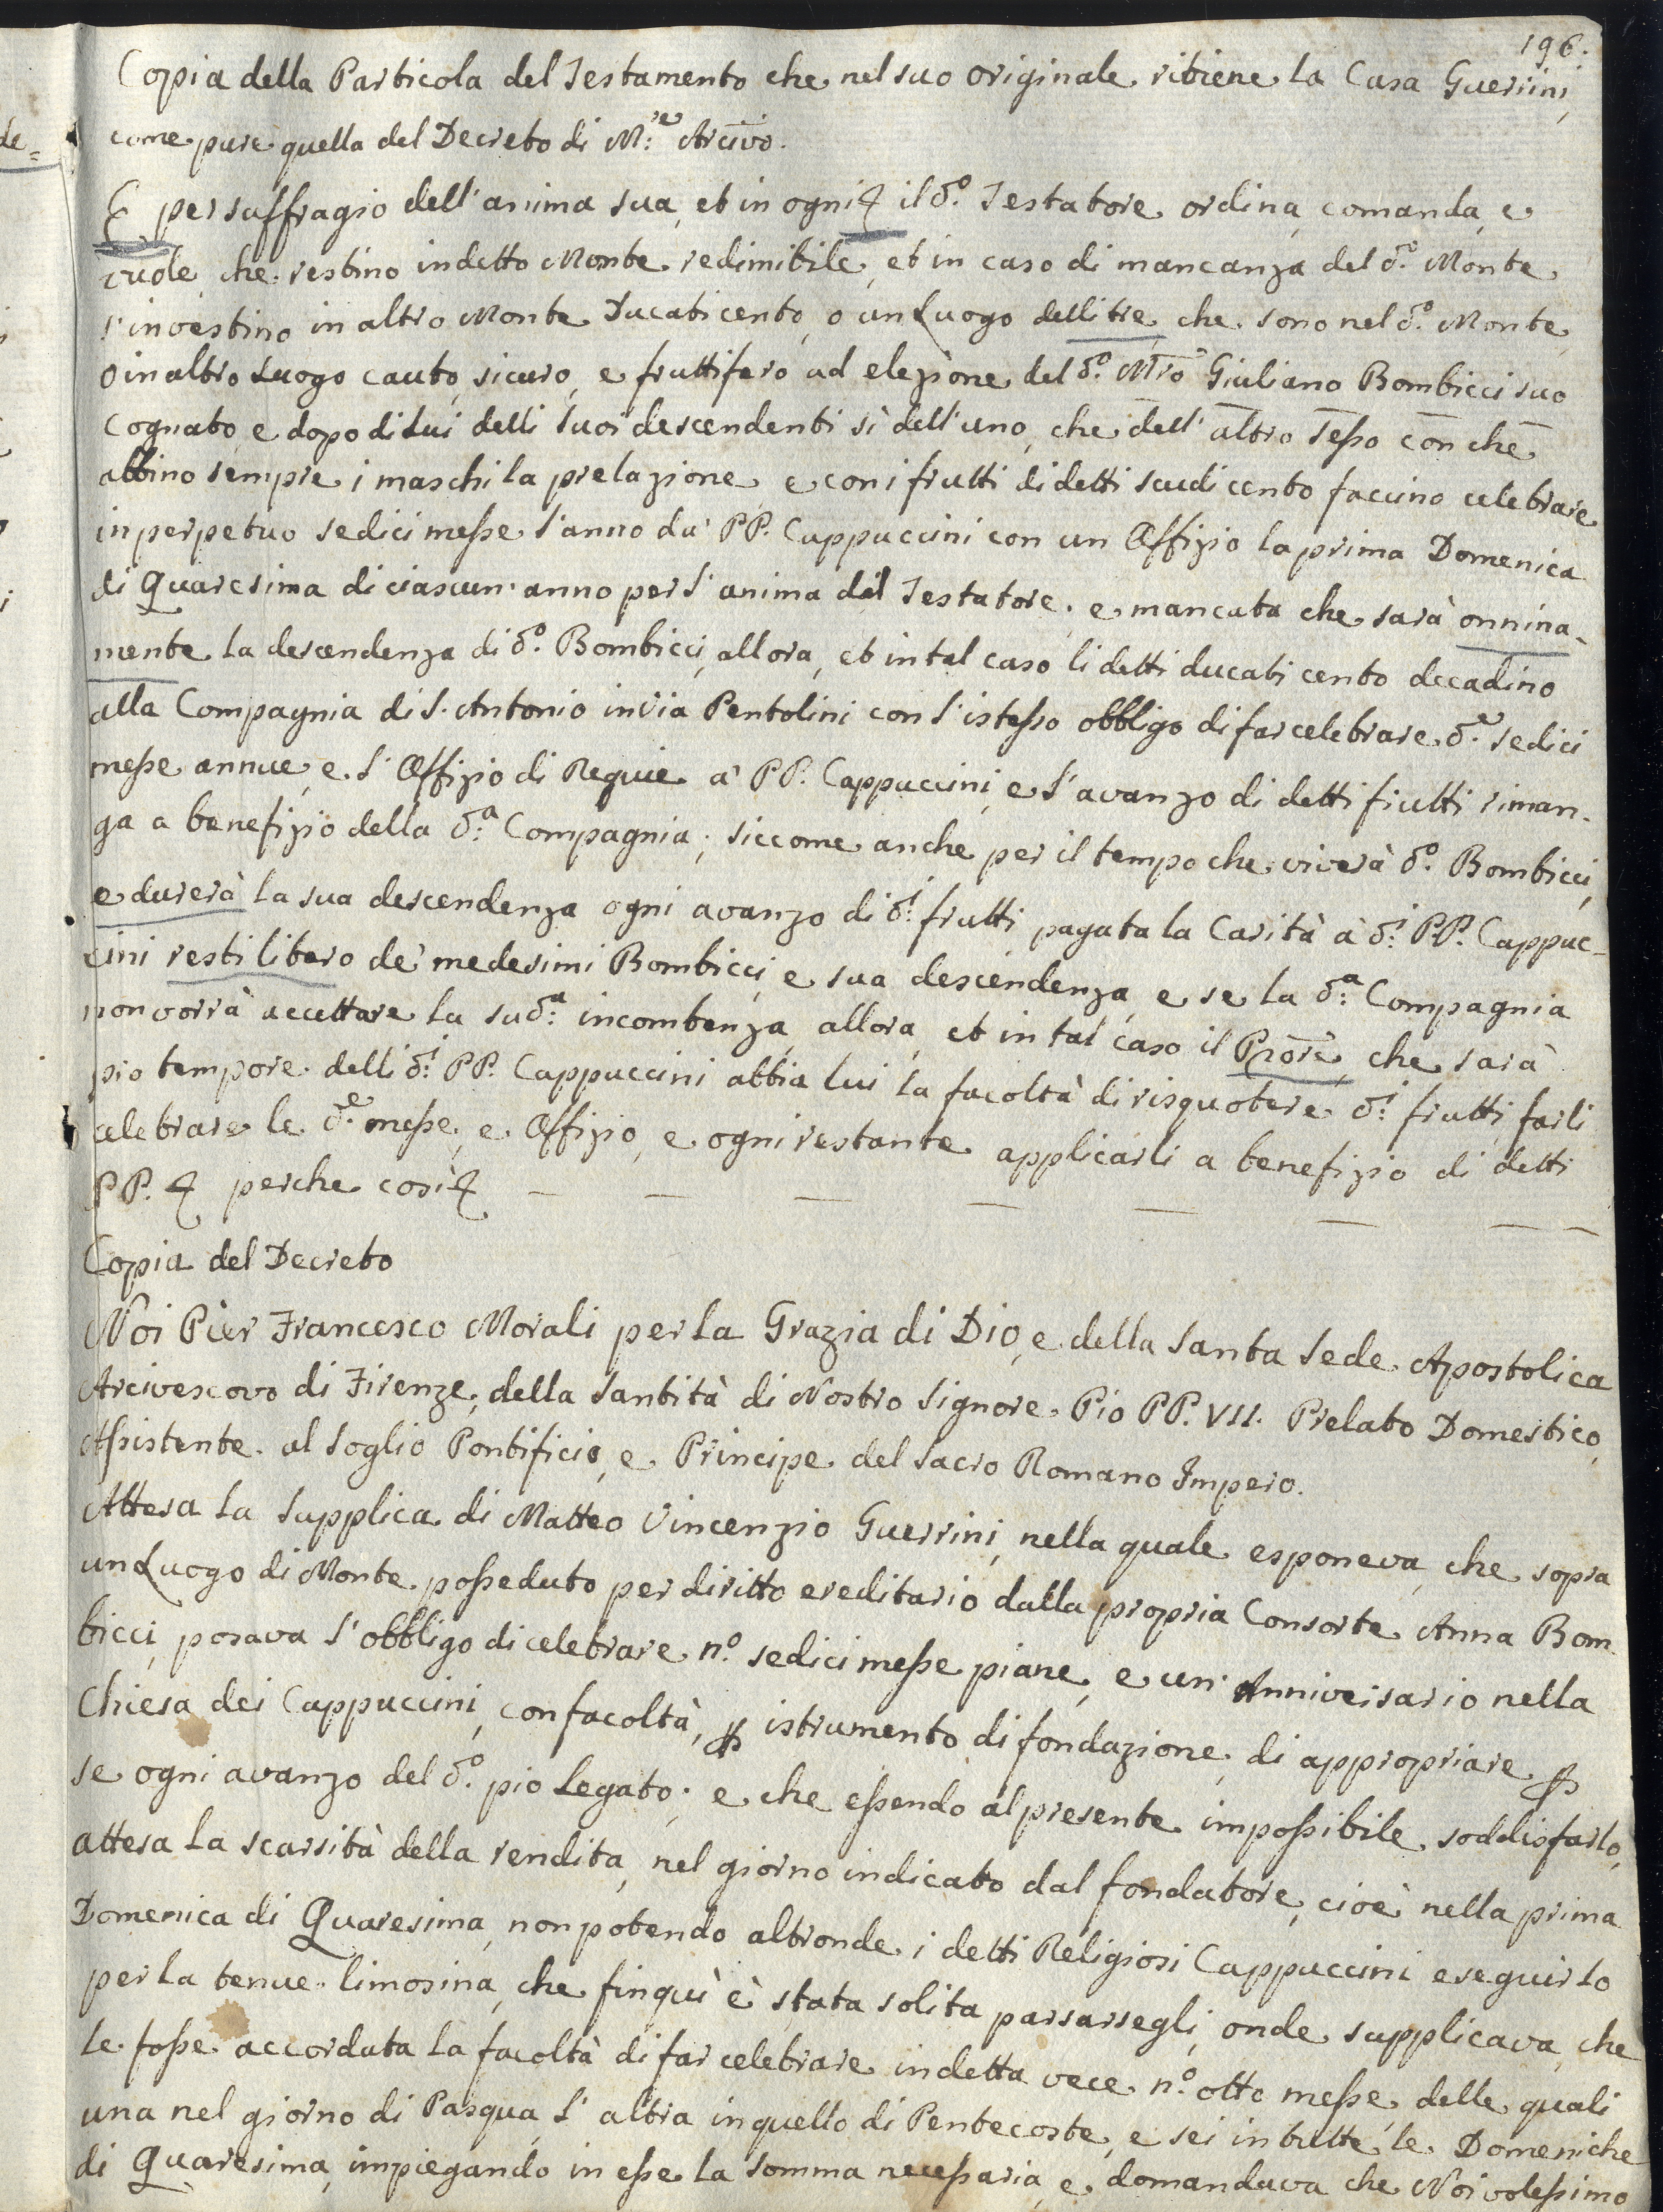 196.
Copia della Particola del Testamento che nel suo originale ritiene la Casa Guerrini,
come pure quella del Decreto di M:re Arcivo.
E per suffragio dell'anima sua, et in ogni il do. Testatore ordina, comanda, e
vuole, che restino in detto Monte redimibile, et in caso di mancanza del do. Monte
s'investino in altro Monte Ducati cento, o un Luogo delli tre, che sono nel do. Monte,
o in altro Luogo cauto, sicuro, e fruttifero ad elezione del do. Mro Giuliano Bombicci suo
Cognato, e dopo di Lui delli suoi descendenti sì dell'uno, che dell'altro sesso con che
abbino sempre i maschi la prelazione, e con i frutti di detti scudi cento faccino celebrare
in perpetuo sedici messe l'anno da' PP. Cappuccini con un Offizio la prima Domenica
di Quaresima di ciascun'anno per l'anima del Testatore. e mancata che sarà onnina-
mente la descendenza di do. Bombicci, allora, et in tal caso li detti ducati cento decadino
alla Compagnia di S. Antonio in Via Pentolini con l'istesso obbligo di far celebrare de. sedici
messe annue, e l'Offizio di Requie a' PP. Cappuccini, e l'avanzo di detti frutti riman-
ga a benefizio della d:a Compagnia; siccome anche per il tempo che viverà do. Bombicci,
e durerà la sua descendenza ogni avanzo di d:i frutti, pagata la Carità a' d:i P.P. Cappuc-
cini resti libero de' medesimi Bombicci, e sua descendenza, e se la d:a Compagnia
non vorrà accettare la sud:a incombenza, allora, et in tal caso il Prore, che sarà
pro tempore delli d:i PP. Cappuccini abbia lui la facoltà di risquotere d:i frutti, farli
celebrare le de. messe, e Offizio, e ogni restante applicarli a benefizio di detti
PP. perche così
Copia del Decreto
Noi Pier Francesco Morali per la Grazia di Dio, e della Santa Sede Apostolica
Arcivescovo di Firenze, della Santità di Nostro Signore Pio PP. VII. Prelato Domestico,
Assistente al Soglio Pontificio, e Principe del Sacro Romano Impero.
Attesa la supplica di Matteo Vincenzio Guerrini, nella quale esponeva, che sopra
un Luogo di Monte posseduto per diritto ereditario dalla propria Consorte Anna Bom
bicci, posava l'obbligo di celebrare no. sedici messe piane, e un'Anniversario nella
Chiesa dei Cappuccini, con facoltà, p istrumento di fondazione, di appropriare p
se ogni avanzo del do. pio Legato; e che essendo al presente impossibile soddisfarlo,
attesa la scarsità della rendita, nel giorno indicato dal fondatore, cioè nella prima
Domenica di Quaresima, non potendo altronde i detti Religiosi Cappuccini eseguirlo
per la tenue limosina, che finquì è stata solita passarsegli, onde supplicava, che
le fosse accordata la facoltà di far celebrare in detta vece no. otto messe, delle quali
una nel giorno di Pasqua, l'altra in quello di Pentecoste, e sei in tutte le Domeniche
di Quaresima, impiegando in esse la somma necessaria, e domandava che Noi volessimo